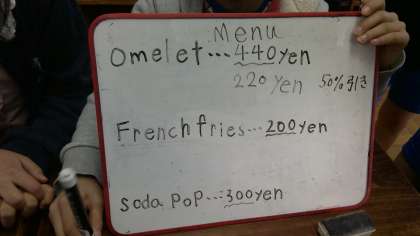 Menu
Omelet...440yen
220 yen 50%引き
French fries...200yen
soda pop...300yen